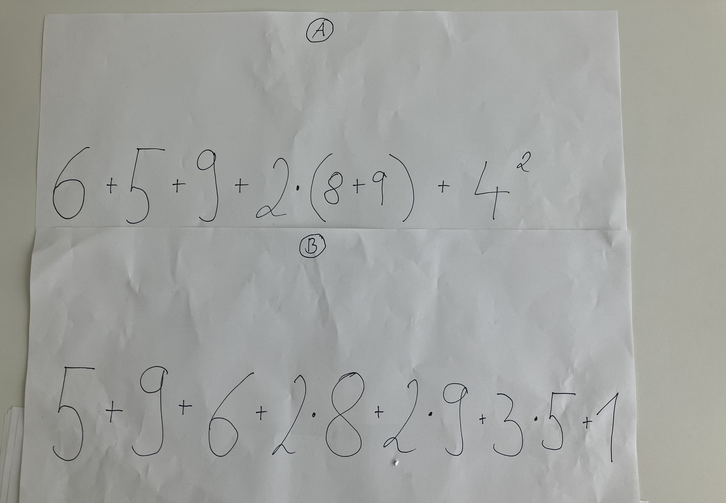 A
6 + 5 + 9 + 2 · (8 + 9) + 4²
B
5 + 9 + 6 + 2 · 8 + 2 · 9 + 3 · 5 + 1